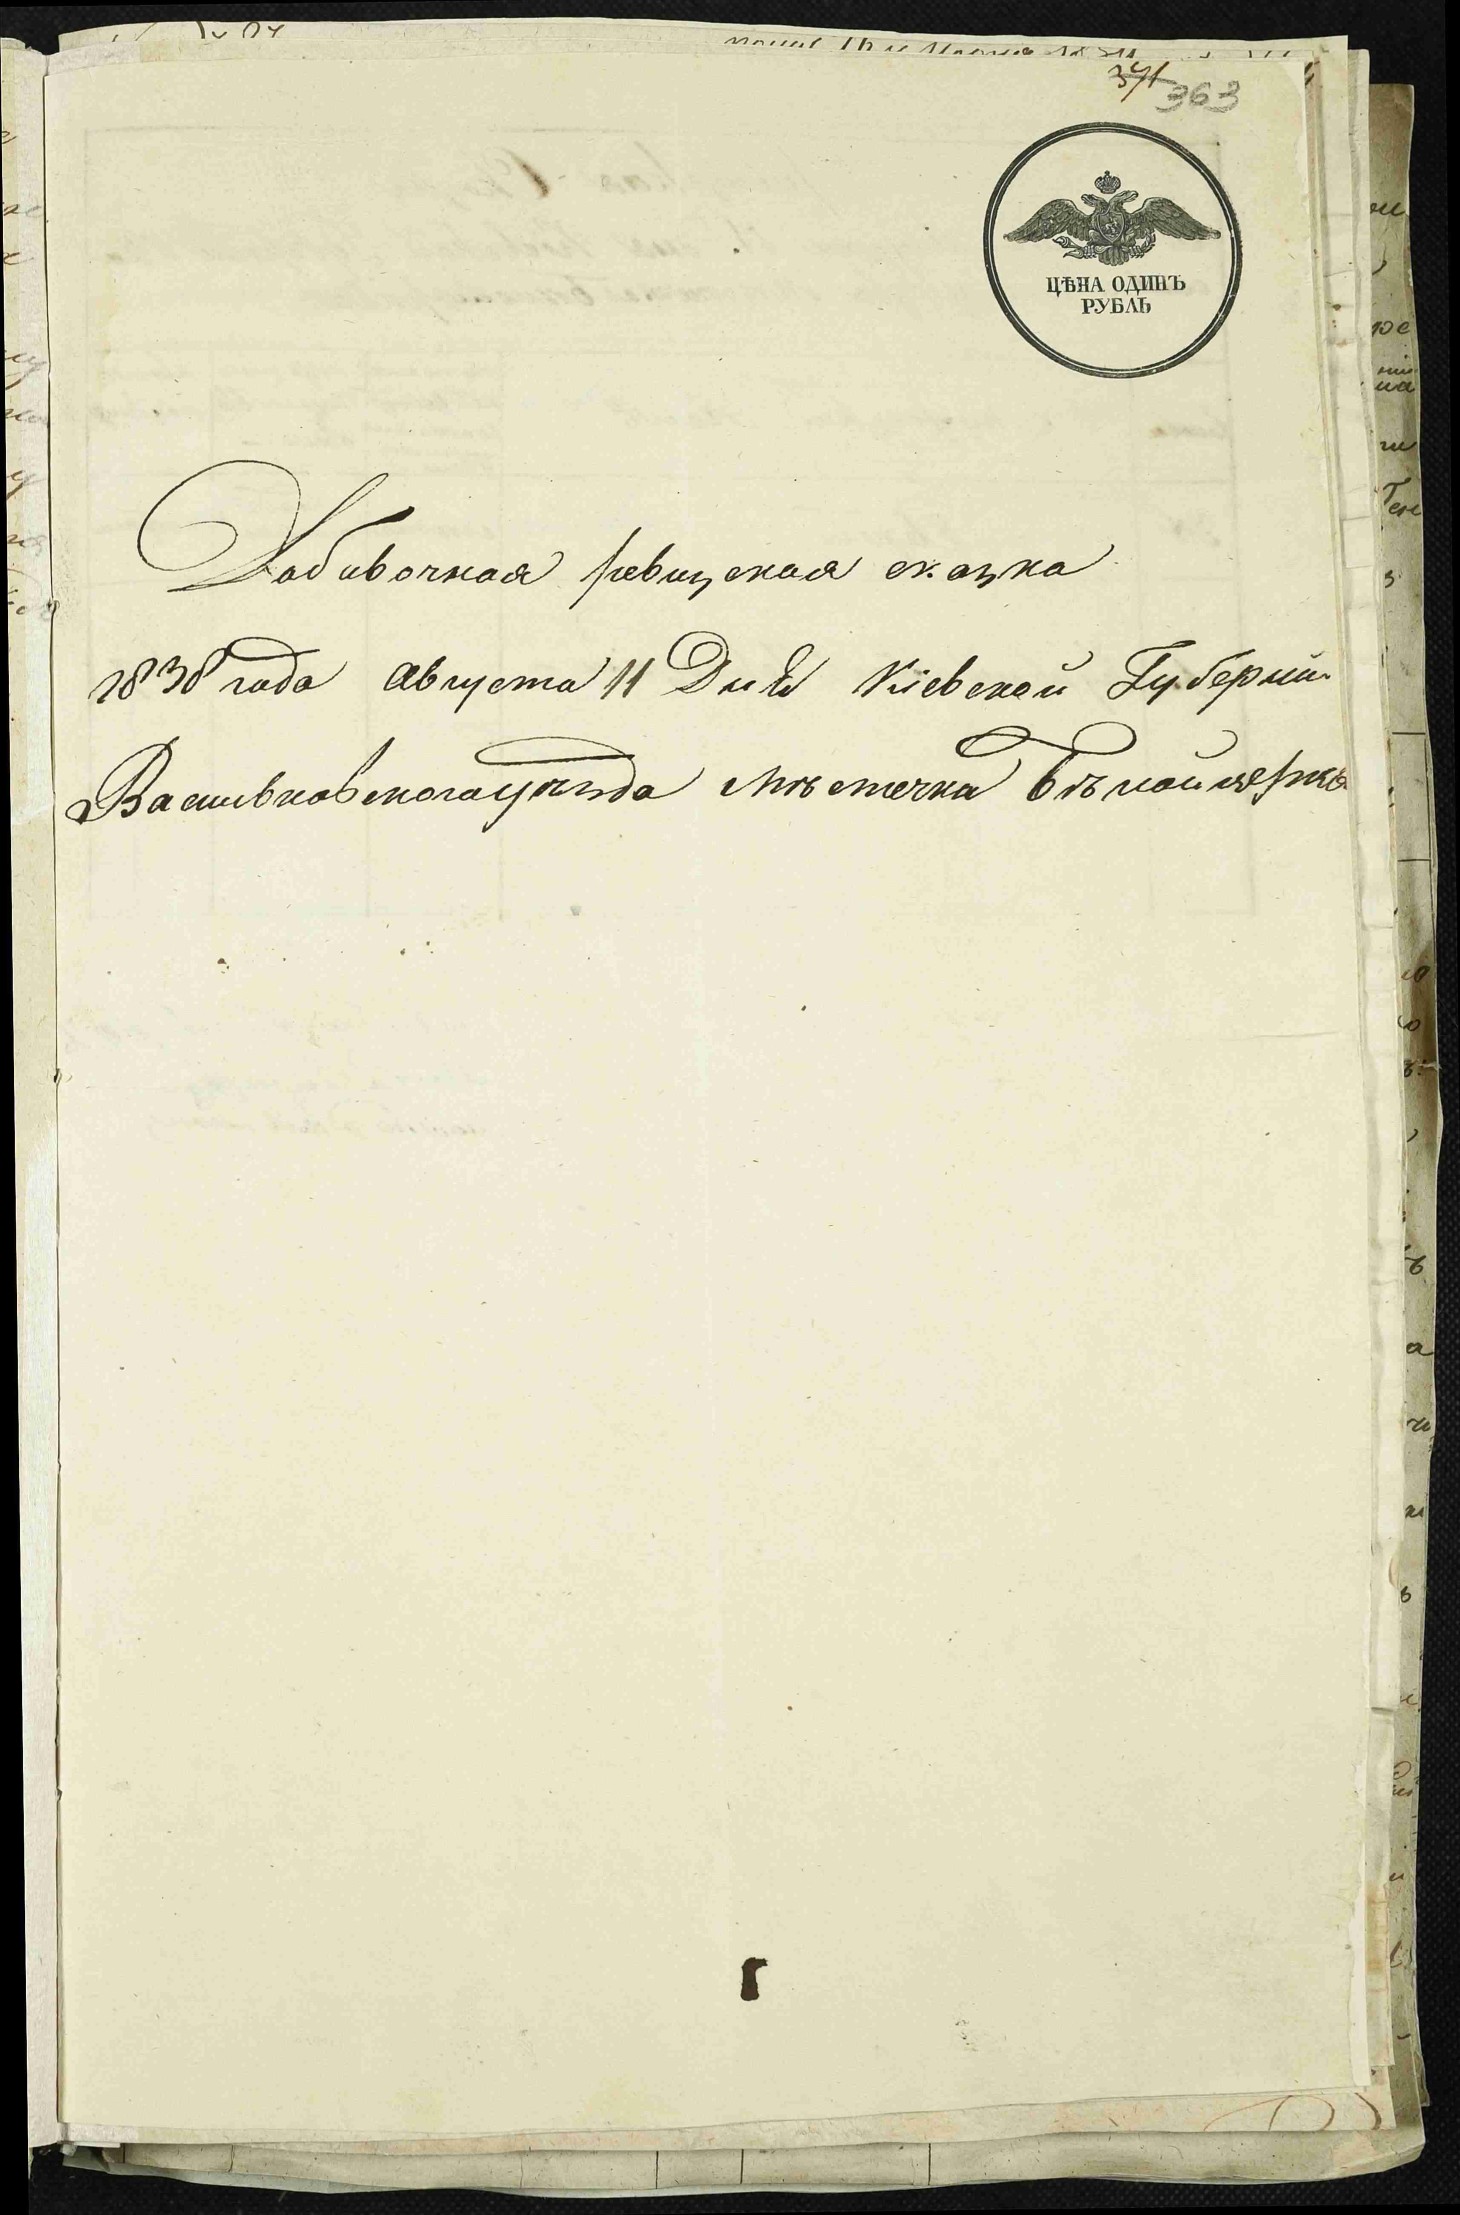 371 363
ЦѢНА ОДИНЪ
РУБЛЬ
Добавочная ревизская сказка
1838 года Августа 11 Дня Кіевской Губерніи
Васильковского уѣзда Мѣстечка Бѣлой церкви